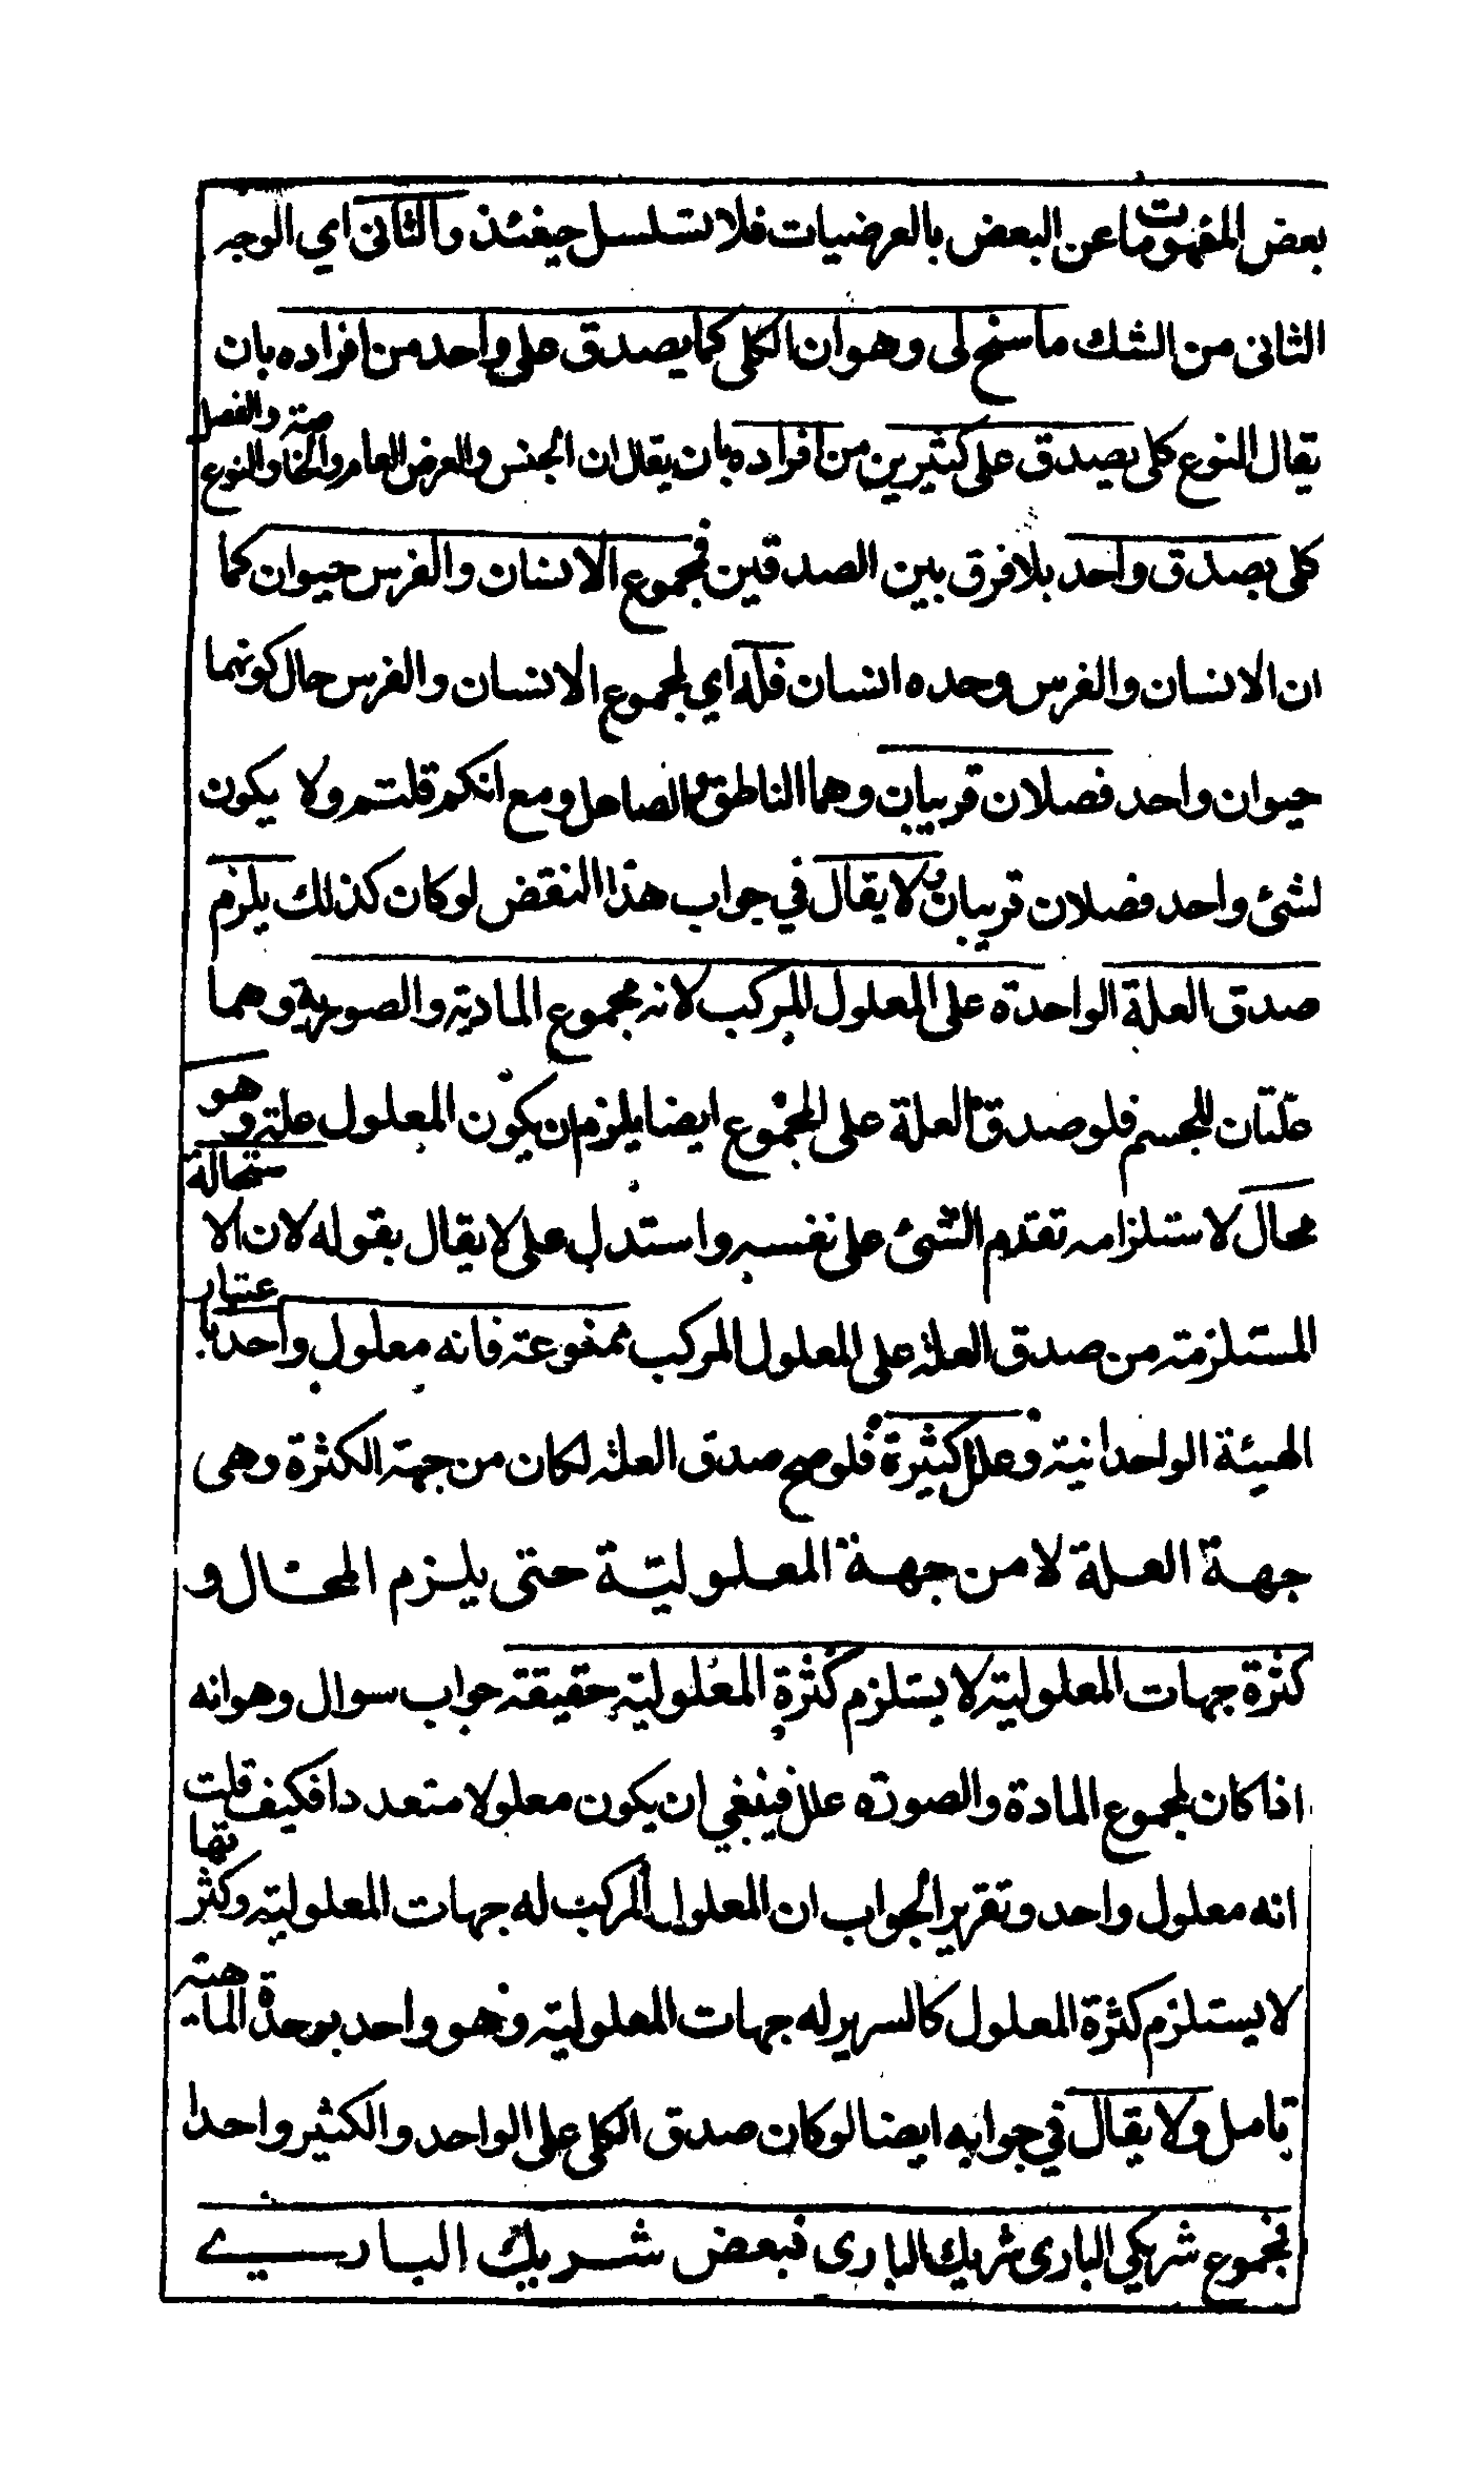 بعض المفهومات عن البعض بالعرضيات فلا تسلسل حينئذ والثانى اي الوجه
الثانى من الشك ما سنح لى وهو ان الكلى كما يصدق على واحد من افراده بان
يقال النوع كلى يصدق على كثيرين من افراده بان يقال ان الجنس والعرض العام والخاصة والفصل والنوع
كلى بصدق واحد بلا فرق بين الصدقين فمجموع الانسان والفرس حيوان كما
ان الانسان والفرس وحده انسان فله اي لمجموع الانسان والفرس حال كونهما
حيوان واحد فصلان قريبان وهما الناطق والصاهل ومع انكم قلتم ولا يكون
لشئ واحد فصلان قريبان ولا يقال في جواب هذا النقض لو كان كذلك يلزم
صدق العلة الواحدة على المعلول المركب لانه مجموع المادية والصورية وهما
علتان للجسم فلو صدق العلة على المجموع ايضا يلزم ان يكون المعلول علة وهو
محال لاستلزامه تقدم الشئ على نفسه واستدل على لا يقال بقوله لان الاستحالة
المستلزمة من صدق العلة على المعلول المركب ممنوعة فانه معلول واحد باعتبار
الهيئة الواحدانية وعلل كثيرة فلو صح صدق العلة لكان من جهة الكثرة وهى
جهة العلة لا من جهة المعلولية حتى يلزم المحال و
كثرة جهات المعلولية لا يستلزم كثرة المعلولية حقيقة جواب سوال وهو انه
اذا كان لمجموع المادة والصورة علل فينبغي ان يكون معلولا متعددا فكيف قلت
انه معلول واحد وتقرير الجواب ان المعلول المركب له جهات المعلولية وكثرتها
لا يستلزم كثرة المعلول كالسرير له جهات المعلولية وهو واحد بوحدة الماهية
تامل ولا يقال في جوابه ايضا لو كان صدق الكلى على الواحد والكثير واحدا
فمجموع شريكي البارى شريك البارى فبعض شريك البارے